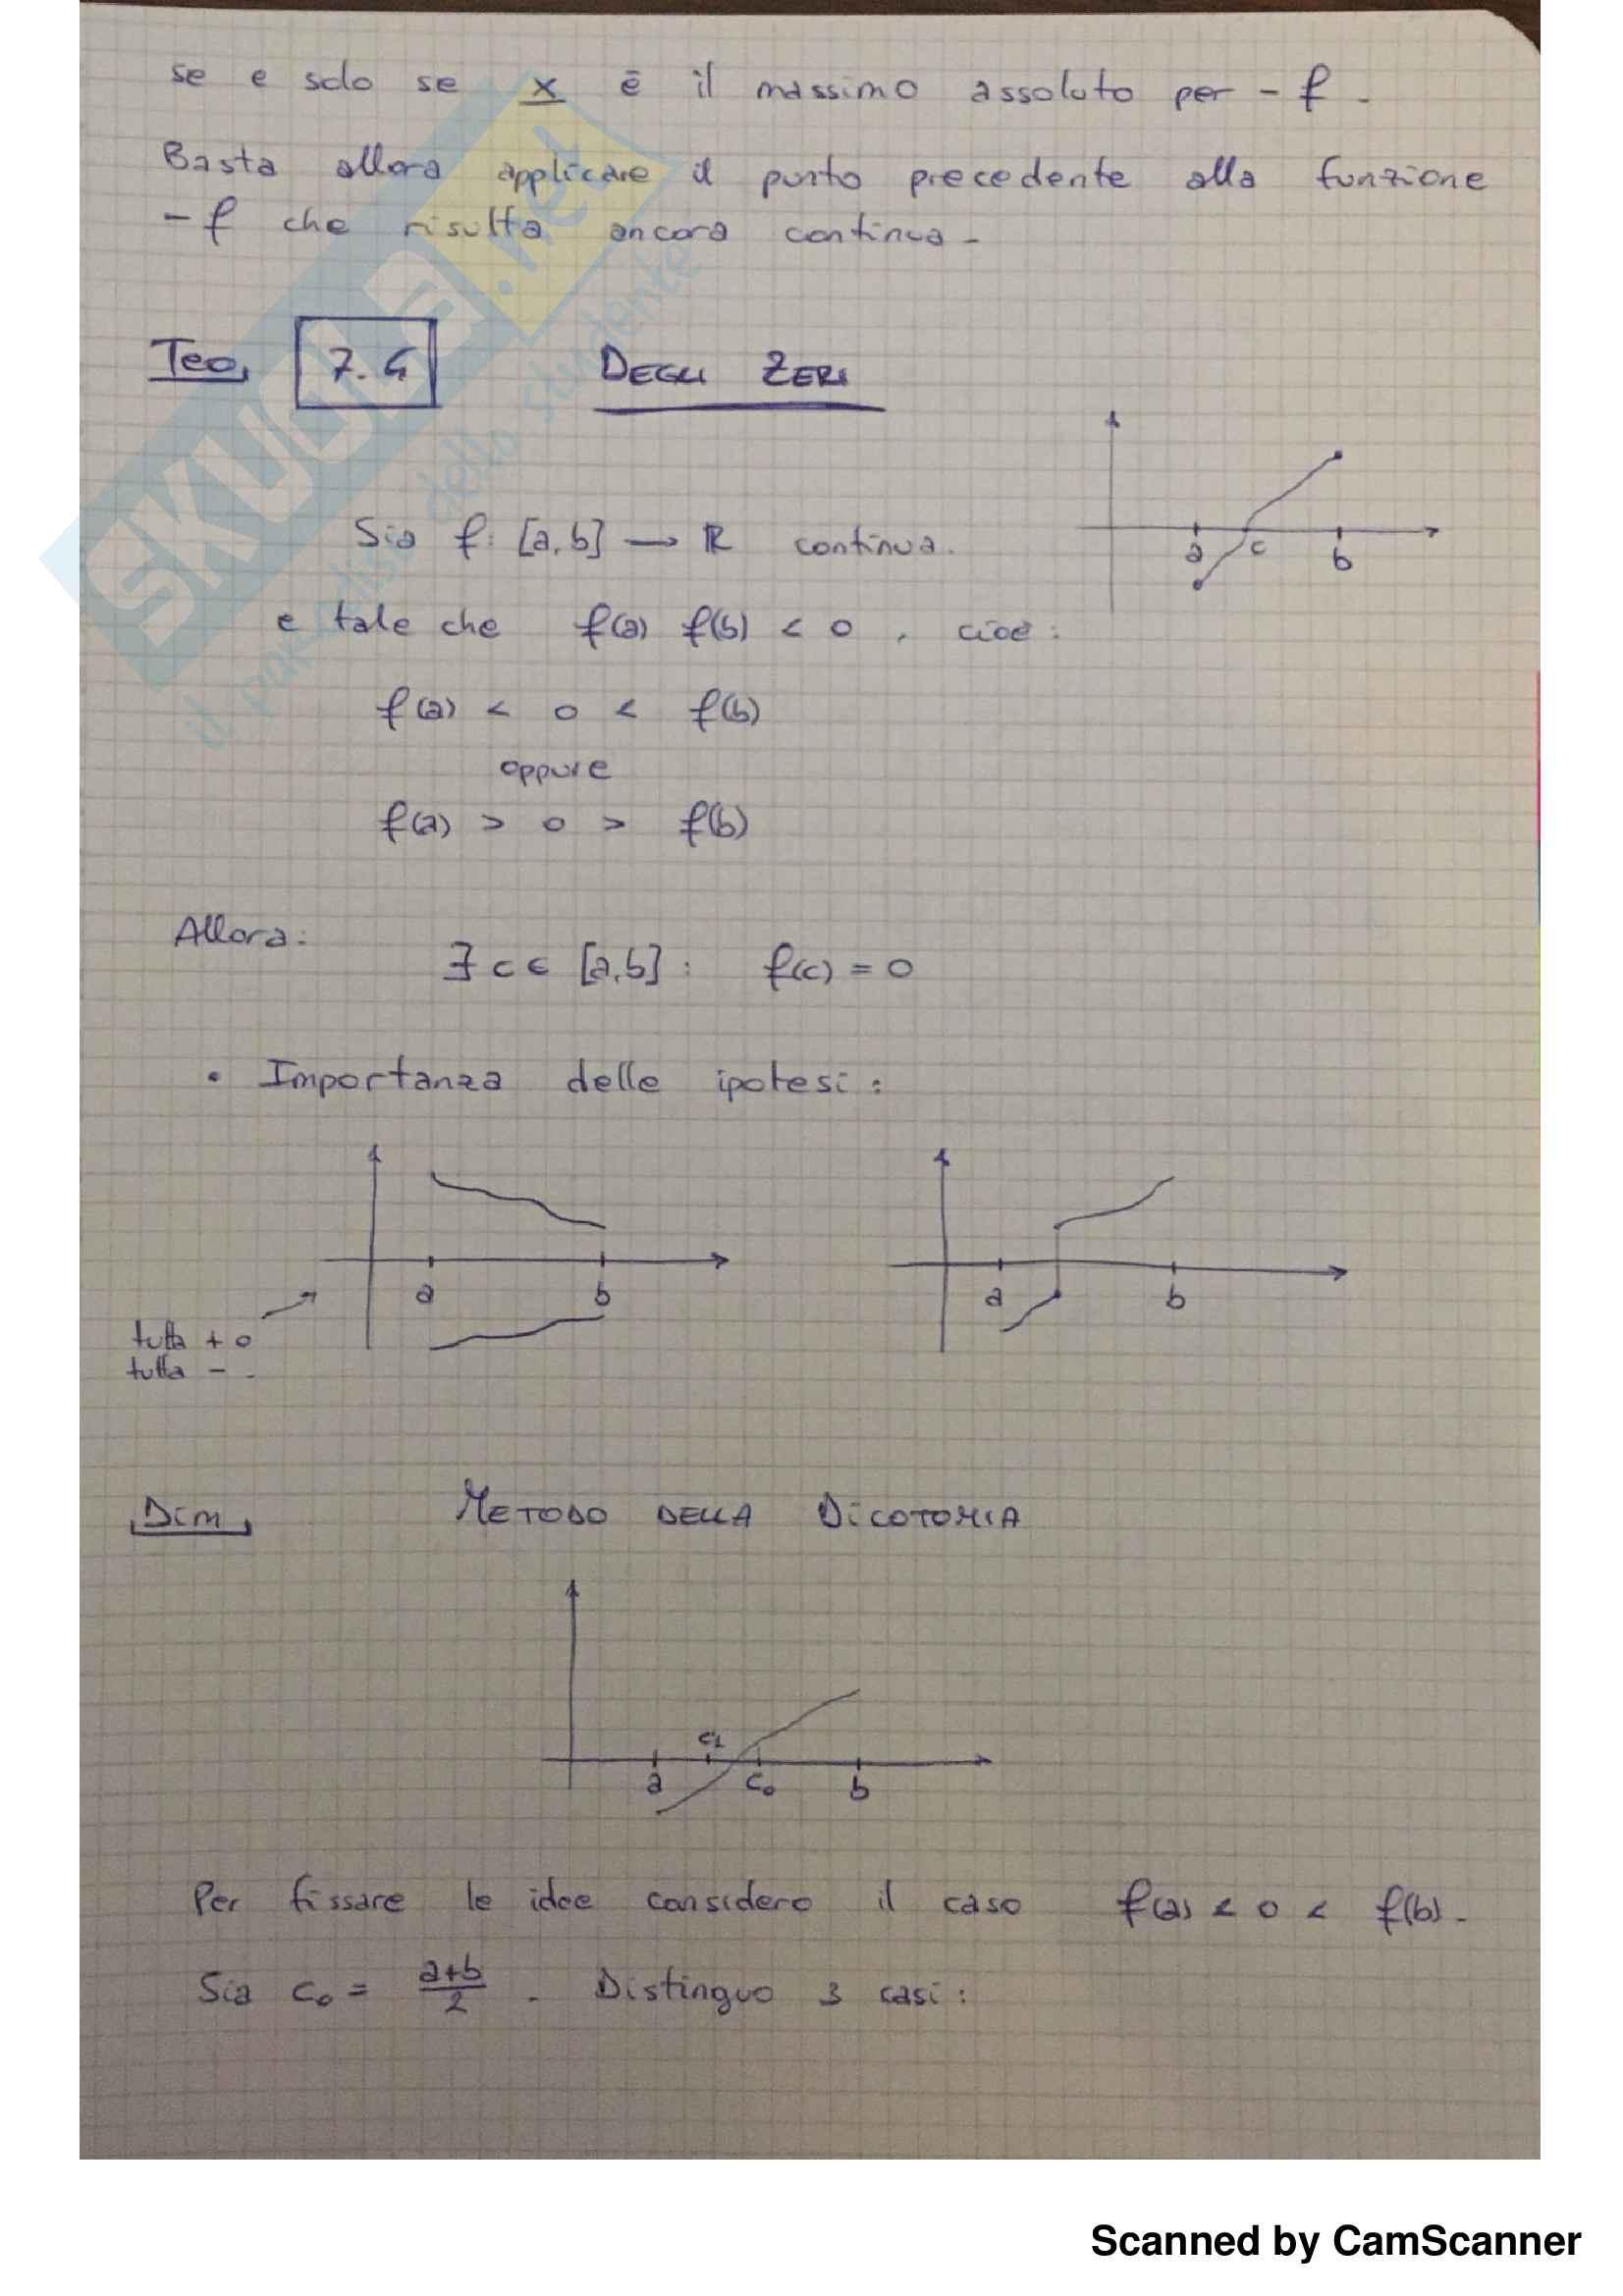 se e solo se x è il massimo assoluto per - f.
Basta allora applicare il punto precedente alla funzione
- f che risulta ancora continua -
Teo. 7.4 DEGLI ZERI
Sia f: [a,b] → ℝ continua.
a c b
e tale che f(a) f(b) < 0 , cioè :
f(a) < 0 < f(b)
oppure
f(a) > 0 > f(b)
Allora:
∃ c ∈ [a,b] : f(c) = 0
• Importanza delle ipotesi :
a b
a b
tutta + o
tutta - .
Dim. METODO DELLA DICOTOMIA
c₁
a c₀ b
Per fissare le idee considero il caso f(a) < 0 < f(b) -
Sia c₀ = (a+b)/2 . Distinguo 3 casi :
SKUOLA.net
il paradiso dello studente
Scanned by CamScanner